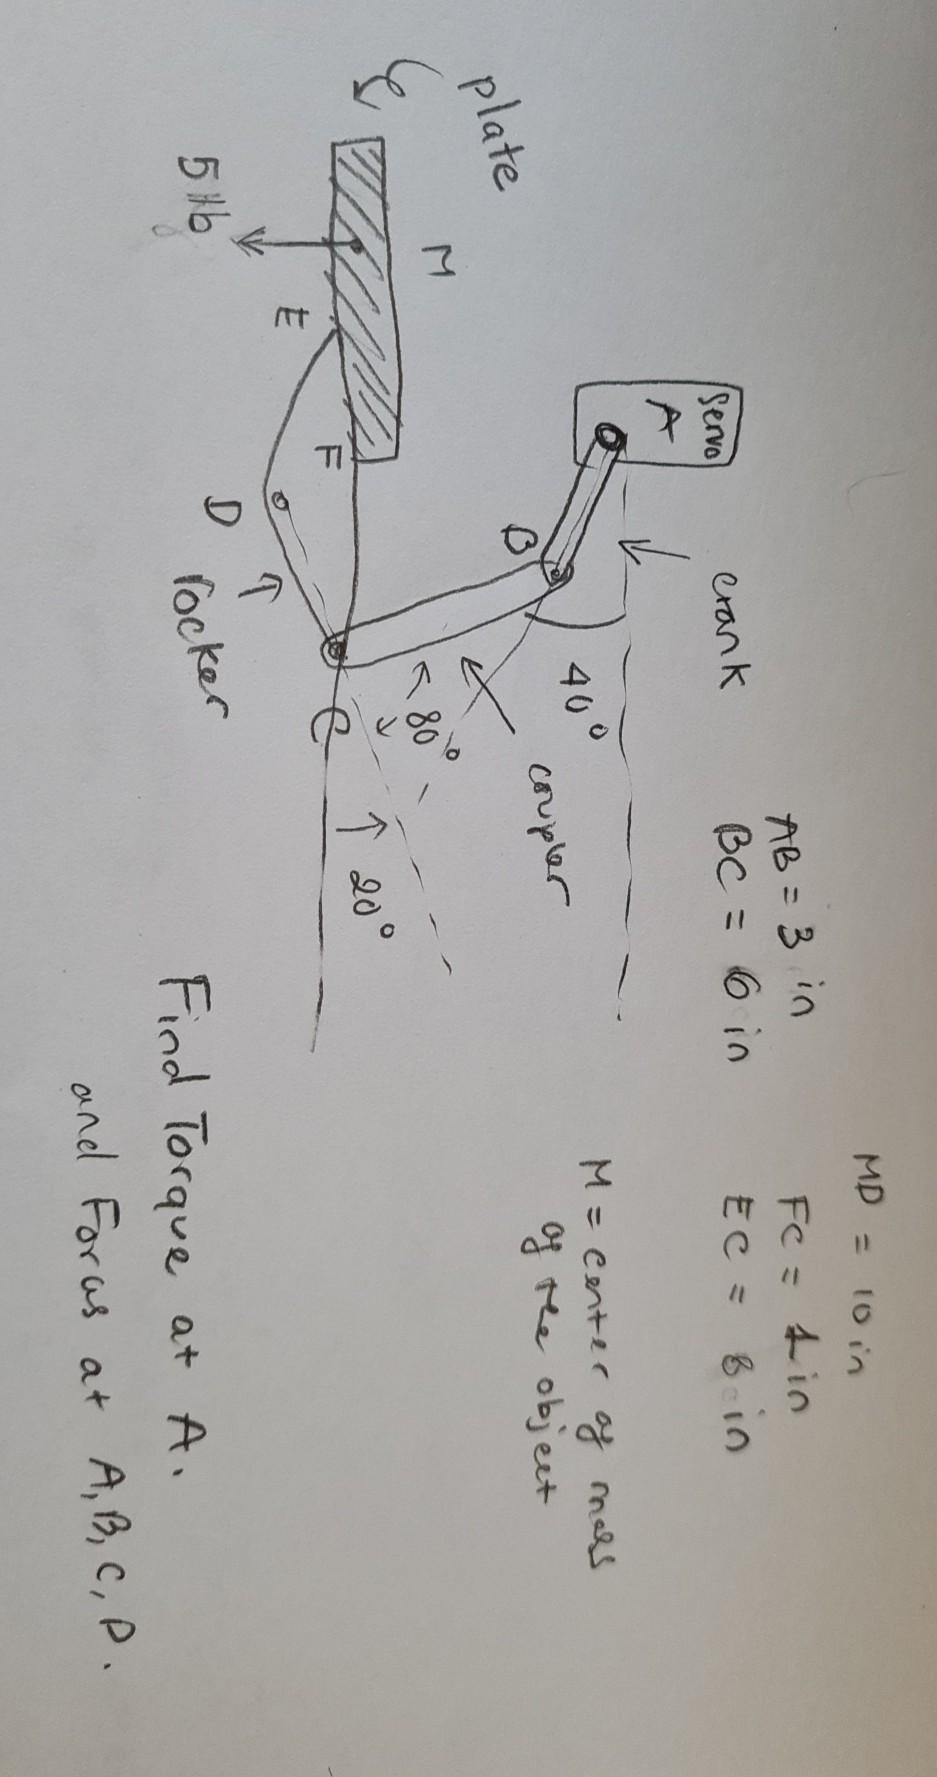 MD = 10 in
AB = 3 in
FC = 1 in
BC = 6 in
EC = 8 in
Servo
A
crank
plate
M
B
40°
coupler
M = center of mass
of the object
80°
F
C
20°
E
D
rocker
5 lb
Find Torque at A.
and Forces at A, B, C, D.